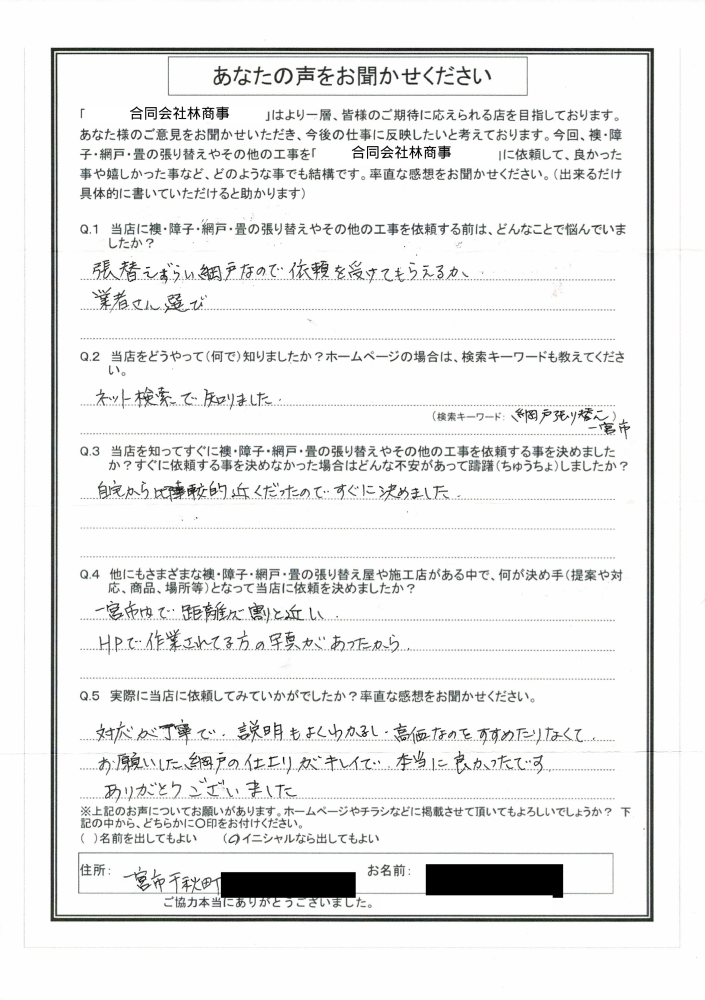 あなたの声をお聞かせください
「　合同会社林商事　」はより一層、皆様のご期待に応えられる店を目指しております。
あなた様のご意見をお聞かせいただき、今後の仕事に反映したいと考えております。今回、襖・障
子・網戸・畳の張り替えやその他の工事を「　合同会社林商事　」に依頼して、良かった
事や嬉しかった事など、どのような事でも結構です。率直な感想をお聞かせください。（出来るだけ
具体的に書いていただけると助かります）
Q.1　当店に襖・障子・網戸・畳の張り替えやその他の工事を依頼する前は、どんなことで悩んでいま
したか？
張替えずらい網戸なので 依頼を受けてもらえるか、
業者さん選び
Q.2　当店をどうやって（何で）知りましたか？ホームページの場合は、検索キーワードも教えてくださ
い。
ネット検索で知りました。
（検索キーワード：網戸張り替え）
一宮市
Q.3　当店を知ってすぐに襖・障子・網戸・畳の張り替えやその他の工事を依頼する事を決めました
か？すぐに依頼する事を決めなかった場合はどんな不安があって躊躇（ちゅうちょ）しましたか？
自宅から比較的近くだったので すぐに決めました。
Q.4　他にもさまざまな襖・障子・網戸・畳の張り替え屋や施工店がある中で、何が決め手（提案や対
応、商品、場所等）となって当店に依頼を決めましたか？
一宮市内で 距離が割と近い。
HPで作業されてる方の写真があったから。
Q.5　実際に当店に依頼してみていかがでしたか？率直な感想をお聞かせください。
対応が丁寧で、説明もよくわかるし、高価なのをすすめたりなくて、
お願いした網戸の仕上りがキレイで、本当に良かったです
ありがとうございました
※上記のお声についてお願いがあります。ホームページやチラシなどに掲載させて頂いてもよろしいでしょうか？　下
記の中から、どちらかに〇印をお付けください。
（　）名前を出してもよい　（〇）イニシャルなら出してもよい
住所：　一宮市千秋町　お名前：
ご協力本当にありがとうございました。